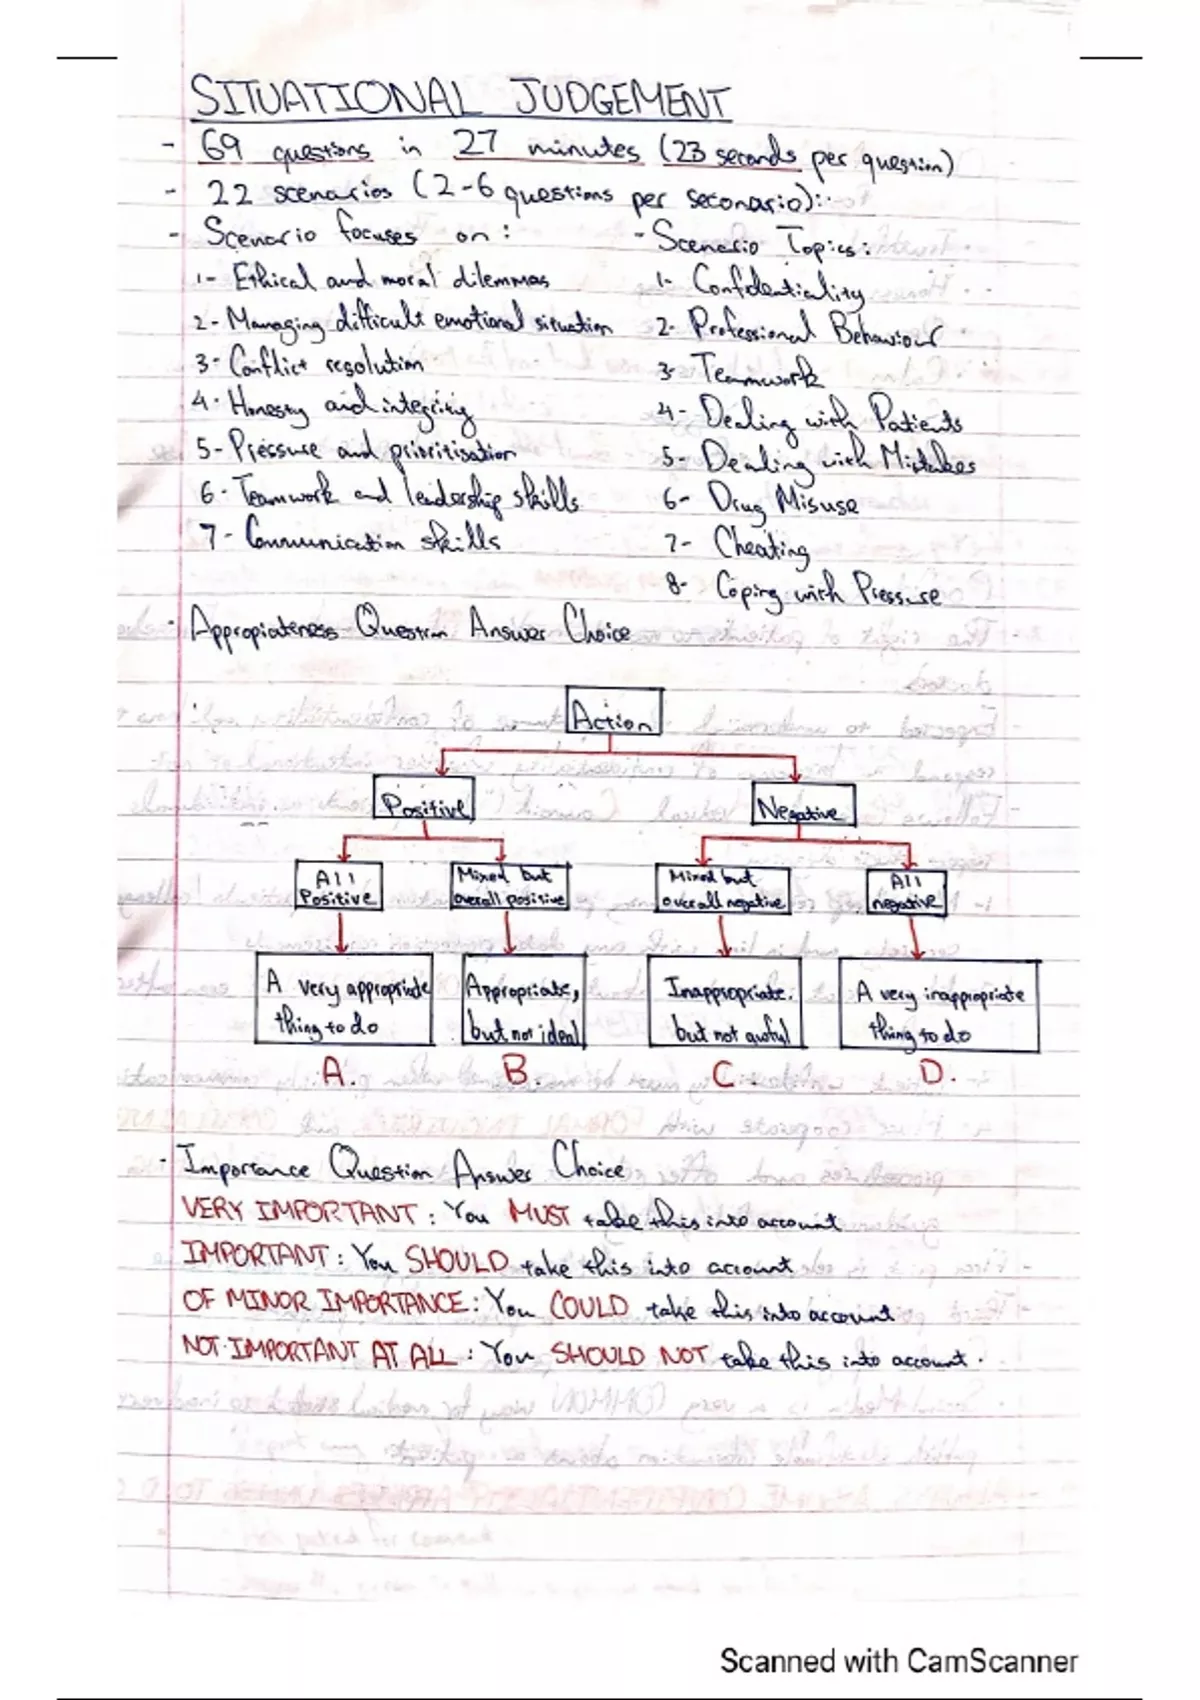 SITUATIONAL JUDGEMENT
- 69 questions in 27 minutes (23 seconds per question)
- 22 scenarios (2-6 questions per seconario):
- Scenario focuses on :
1- Ethical and moral dilemmas
2- Managing difficult emotional situation
3- Conflict resolution
4- Honesty and integrity
5- Pressure and prioritisation
6- Teamwork and leadership skills
7- Communication skills
- Scenario Topics:
1- Confidentiality
2- Professional Behaviour
3- Teamwork
4- Dealing with Patients
5- Dealing with Mistakes
6- Drug Misuse
7- Cheating
8- Coping with Pressure
- Appropiateness Question Answer Choice
Action
Positive
Negative
All
Positive
Mixed but
overall positive
Mixed but
overall negative
All
negative
A very appropriate
thing to do
Appropriate,
but not ideal
Inappropriate.
but not awful
A very inappropriate
thing to do
A.
B.
C.
D.
- Importance Question Answer Choice
VERY IMPORTANT : You MUST take this into account
IMPORTANT : You SHOULD take this into account
OF MINOR IMPORTANCE : You COULD take this into account
NOT IMPORTANT AT ALL : You SHOULD NOT take this into account.
Scanned with CamScanner